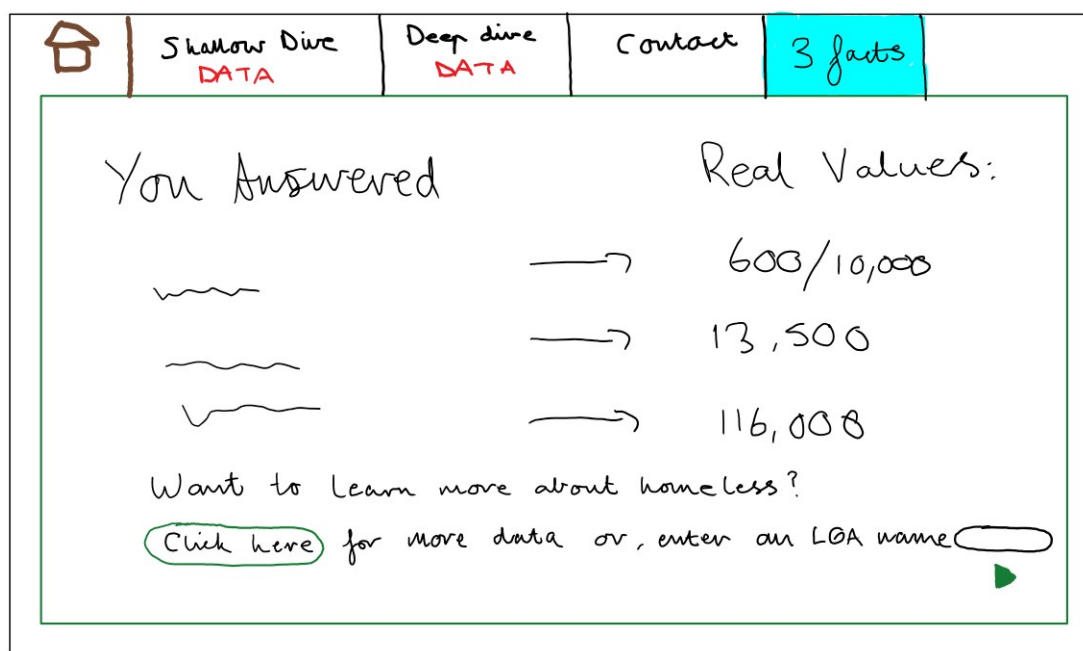 Shallow Dive
DATA
Deep dive
DATA
Contact
3 facts
You Answered
Real Values:
600/10,000
13,500
116,000
Want to learn more about homeless?
Click here for more data or, enter an LGA name